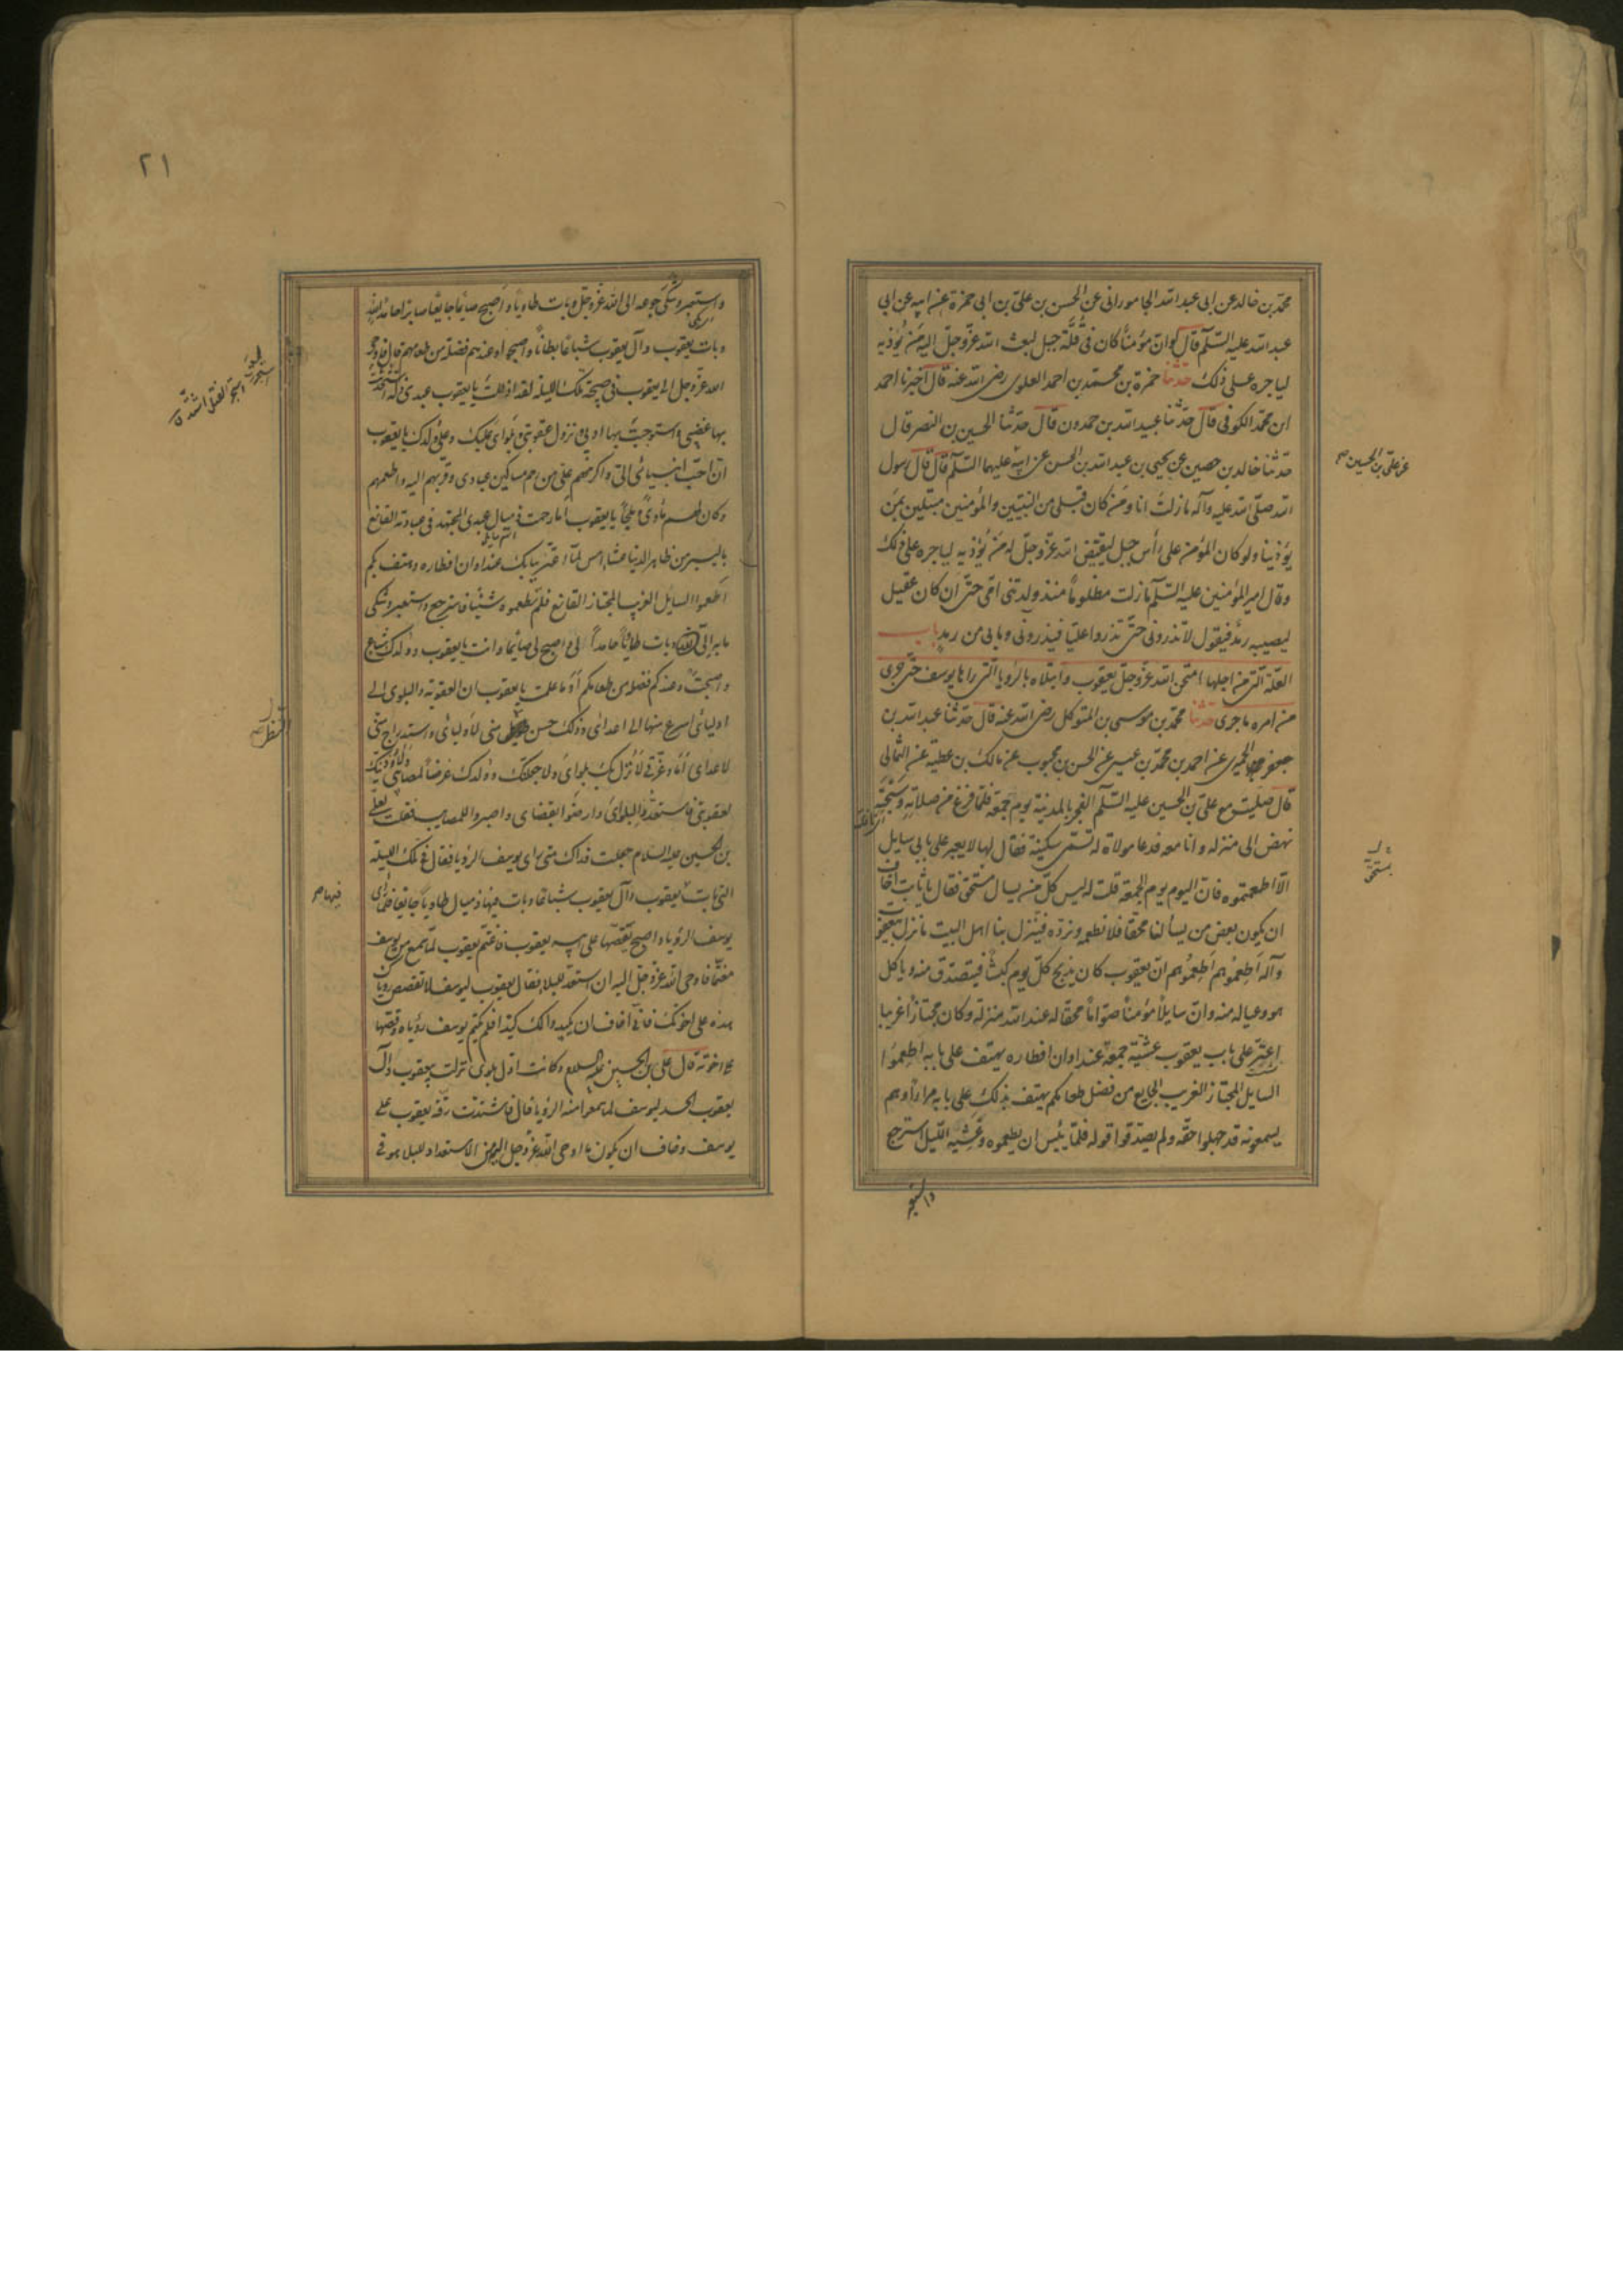 محمد بن خالد عن ابى عبد الله الجامورانى عن الحسن بن على بن ابى حمزة عن ابيه عن ابى
عبد الله عليه السلم قال لو ان مؤمنا كان فى قلّة جبل لبعث الله عزّ وجلّ اليه من يؤذيه
لياجره على ذلك حدثنا حمزة بن محمد بن احمد العلوى رضى الله عنه قال اخبرنا احمد
ابن محمد الكوفى قال حدثنا عبيد الله بن حمدون قال حدثنا الحسين بن النصر قال
حدثنا خالد بن حصين عن يحيى بن عبد الله بن الحسن عن ابيه عليهما السلم قال قال رسول
عن على بن الحسين صح
الله صلى الله عليه وآله ما زلت انا ومن كان قبلى من النبيين والمؤمنين مبتلين بمن
يؤذينا ولو كان المؤمن على رأس جبل لقيّض الله عزّ وجلّ له من يؤذيه لياجره على ذلك
وقال امير المؤمنين عليه السلم ما زلت مظلوماً منذ ولدتنى امّى حتّى ان كان عقيل
ليصيبه رمد فيقول لا تذرونى حتّى تذروا عليّا فيذرونى وما بى من رمد باب
العلّة التى من اجلها امتحن الله عزّ وجلّ يعقوب وابتلاه بالرؤيا التى راها يوسف حتّى جرى
من امره ما جرى حدثنا محمد بن موسى بن المتوكل رضى الله عنه قال حدثنا عبد الله بن
جعفر الحميرى عن احمد بن محمد بن عيسى عن الحسن بن محبوب عن مالك بن عطية عن الثمالى
قال صليت مع على بن الحسين عليه السلم الفجر بالمدينة يوم جمعة فلمّا فرغ من صلاته وسبحته
نهض الى منزله وانا معه فدعا مولاة له تسمّى سكينة فقال لها لا يعبر على بابى سايل
الّا اطعمتموه فانّ اليوم يوم الجمعة قلت له ليس كلّ من يسال مستحق فقال يا ثابت اخاف
ان يكون بعض من يسألنا محقّا فلا نطعمه ونردّه فينزل بنا اهل البيت ما نزل بيعقوب
وآله اطعموهم اطعموهم انّ يعقوب كان يذبح كلّ يوم كبشا فيتصدّق منه وياكل
هو وعياله منه وانّ سايلاً مؤمناً صوّاماً محقّا له عند الله منزلة وكان مجتازاً غريبا
اعترّ على باب يعقوب عشيّة جمعة عند اوان افطاره يهتف على بابه اطعموا
السايل المجتاز الغريب الجايع من فضل طعامكم يهتف بذلك على بابه مراراً وهم
يسمعونه قد جهلوا حقّه ولم يصدّقوا قوله فلمّا يئس ان يطعموه وغشيه الليل استرجع
واستعبر
٢١
واستعبر وشكى جوعه الى الله عزّ وجلّ وبات طاويا واصبح صايما جايعا صابرا حامدا لله
وبات يعقوب وآل يعقوب شباعا بطانا واصبحوا وعندهم فضلة من طعامهم قال فاوحى
الله عزّ وجلّ الى يعقوب فى صبيحة تلك الليلة لقد اذللت يا يعقوب عبدى ذلّة استجررت
بها غضبى واستوجبت بها ادبى ونزول عقوبتى وبلواى عليك وعلى ولدك يا يعقوب
انّ احبّ انبيائى الىّ واكرمهم علىّ من رحم مساكين عبادى وقرّبهم اليه واطعمهم
وكان لهم مأوىً وملجأ يا يعقوب أما رحمت ذميال عبدى المجتهد فى عبادته القانع
باليسير من ظاهر الدنيا عشاء امس لمّا اعترّ ببابك عند اوان افطاره وهتف بكم
اطعموا السايل الغريب المجتاز القانع فلم تطعموه شيئا فاسترجع واستعبر وشكى
ما به الىّ وبات طاويا حامداً لى واصبح لى صايما وانت يا يعقوب وولدك شباع
واصبحت وعندكم فضلة من طعامكم أوَ ما علمت يا يعقوب ان العقوبة والبلوى الى
اوليائى اسرع منها الى اعدائى وذلك حسن النظر منى لأوليائى واستدراج منى
لاعدائى أما وعزّتى لأنزل بك بلواى ولاجعلنّك وولدك غرضاً لمصابى ولأوذينّك
بعقوبتى فاستعدّوا لبلواى وارضوا بقضاى واصبروا للمصايب فقلت لعلى
بن الحسين عليه السلام جعلت فداك متى راى يوسف الرؤيا فقال فى تلك الليلة
التى بات فيها يعقوب وآل يعقوب شباعا وبات فيها ذميال طاويا جايعا فلما راى
يوسف الرؤيا واصبح يقصّها على ابيه يعقوب فاغتمّ يعقوب لمّا سمع من يوسف
مغتمّا فاوحى الله عزّ وجلّ اليه ان استعدّ للبلاء فقال يعقوب ليوسف لا تقصص رؤياك
هذه على اخوتك فانى اخاف ان يكيدوا لك كيدا فلم يكتم يوسف رؤياه وقصّها
على اخوته قال على بن الحسين عليه السلام وكانت اوّل بلوى نزلت بيعقوب وآل
يعقوب الحسد ليوسف لما سمعوا منه الرؤيا قال فاشتدّت رقّة يعقوب على
يوسف وخاف ان يكون ما اوحى الله عزّ وجلّ اليه من الاستعداد للبلاء هو فى